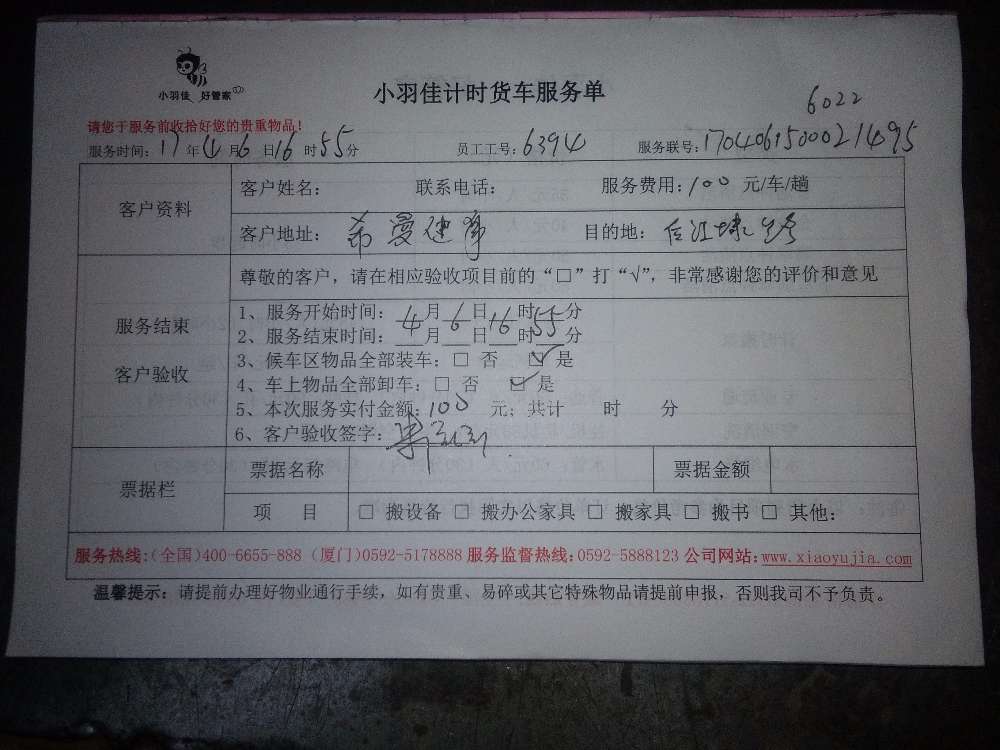 小羽佳 好管家
小羽佳计时货车服务单
6022
请您于服务前收拾好您的贵重物品!
服务时间: 17 年 4 月 6 日 16 时 55 分 员工工号: 6394 服务联号: 1704061500021495
客户资料
客户姓名: 联系电话: 服务费用: 100 元/车/趟
客户地址: 希曼健身 目的地:
尊敬的客户，请在相应验收项目前的“□”打“√”，非常感谢您的评价和意见
服务结束
客户验收
1、服务开始时间: 4 月 6 日 16 时 55 分
2、服务结束时间: 月 日 时 分
3、候车区物品全部装车: □ 否 ☑ 是
4、车上物品全部卸车: □ 否 ☑ 是
5、本次服务实付金额: 100 元; 共计 时 分
6、客户验收签字:
票据栏
票据名称 票据金额
项 目 □ 搬设备 □ 搬办公家具 □ 搬家具 □ 搬书 □ 其他:
服务热线:(全国)400-6655-888 (厦门)0592-5178888 服务监督热线:0592-5888123 公司网站:www.xiaoyujia.com
温馨提示: 请提前办理好物业通行手续，如有贵重、易碎或其它特殊物品请提前申报，否则我司不予负责。